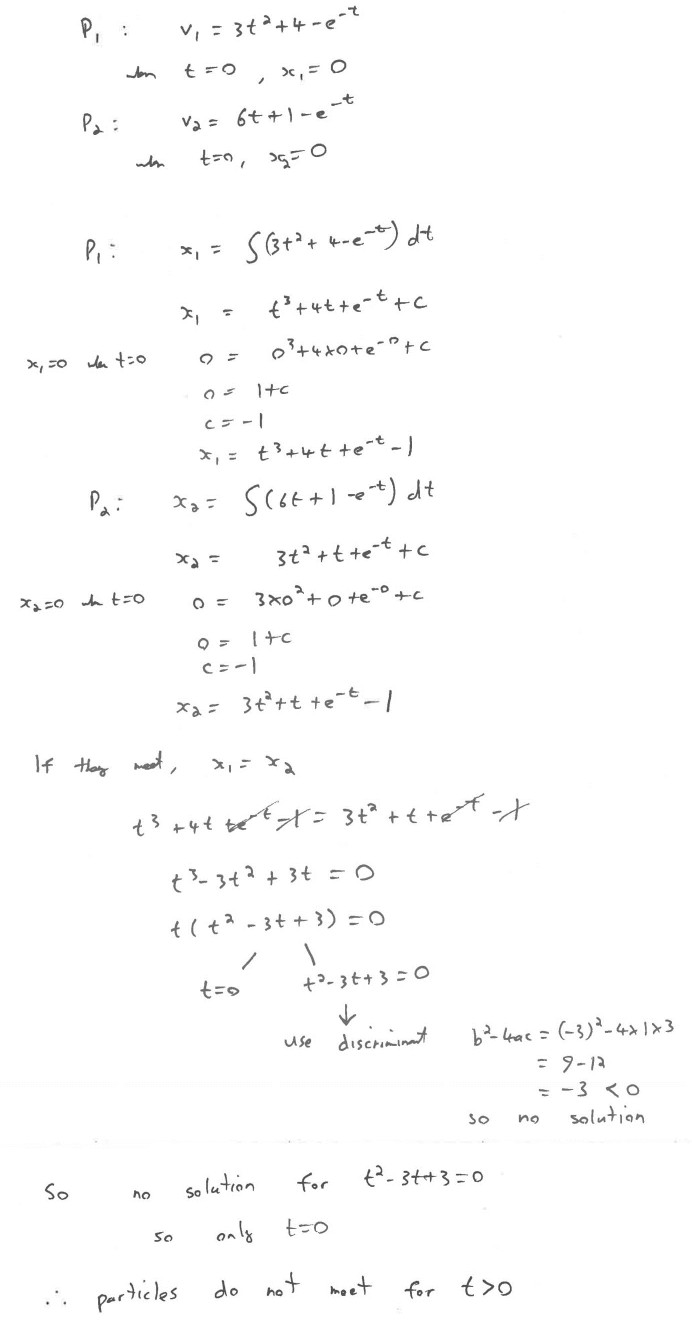 P₁ : v₁ = 3t²+4-e⁻ᵗ
when t=0 , x₁=0
P₂ : v₂ = 6t+1-e⁻ᵗ
when t=0, x₂=0
P₁ : x₁ = ∫(3t²+4-e⁻ᵗ) dt
x₁ = t³+4t+e⁻ᵗ+c
x₁=0 when t=0 0 = 0³+4×0+e⁻⁰+c
0 = 1+c
c = -1
x₁ = t³+4t+e⁻ᵗ-1
P₂ : x₂ = ∫(6t+1-e⁻ᵗ) dt
x₂ = 3t²+t+e⁻ᵗ+c
x₂=0 when t=0 0 = 3×0²+0+e⁻⁰+c
0 = 1+c
c = -1
x₂ = 3t²+t+e⁻ᵗ-1
If they meet, x₁ = x₂
t³+4t+e⁻ᵗ-1 = 3t²+t+e⁻ᵗ-1
t³-3t²+3t = 0
t(t²-3t+3) = 0
t=0 t²-3t+3=0
↓
use discriminant b²-4ac = (-3)²-4×1×3
= 9-12
= -3 <0
so no solution
So no solution for t²-3t+3=0
so only t=0
∴ particles do not meet for t>0